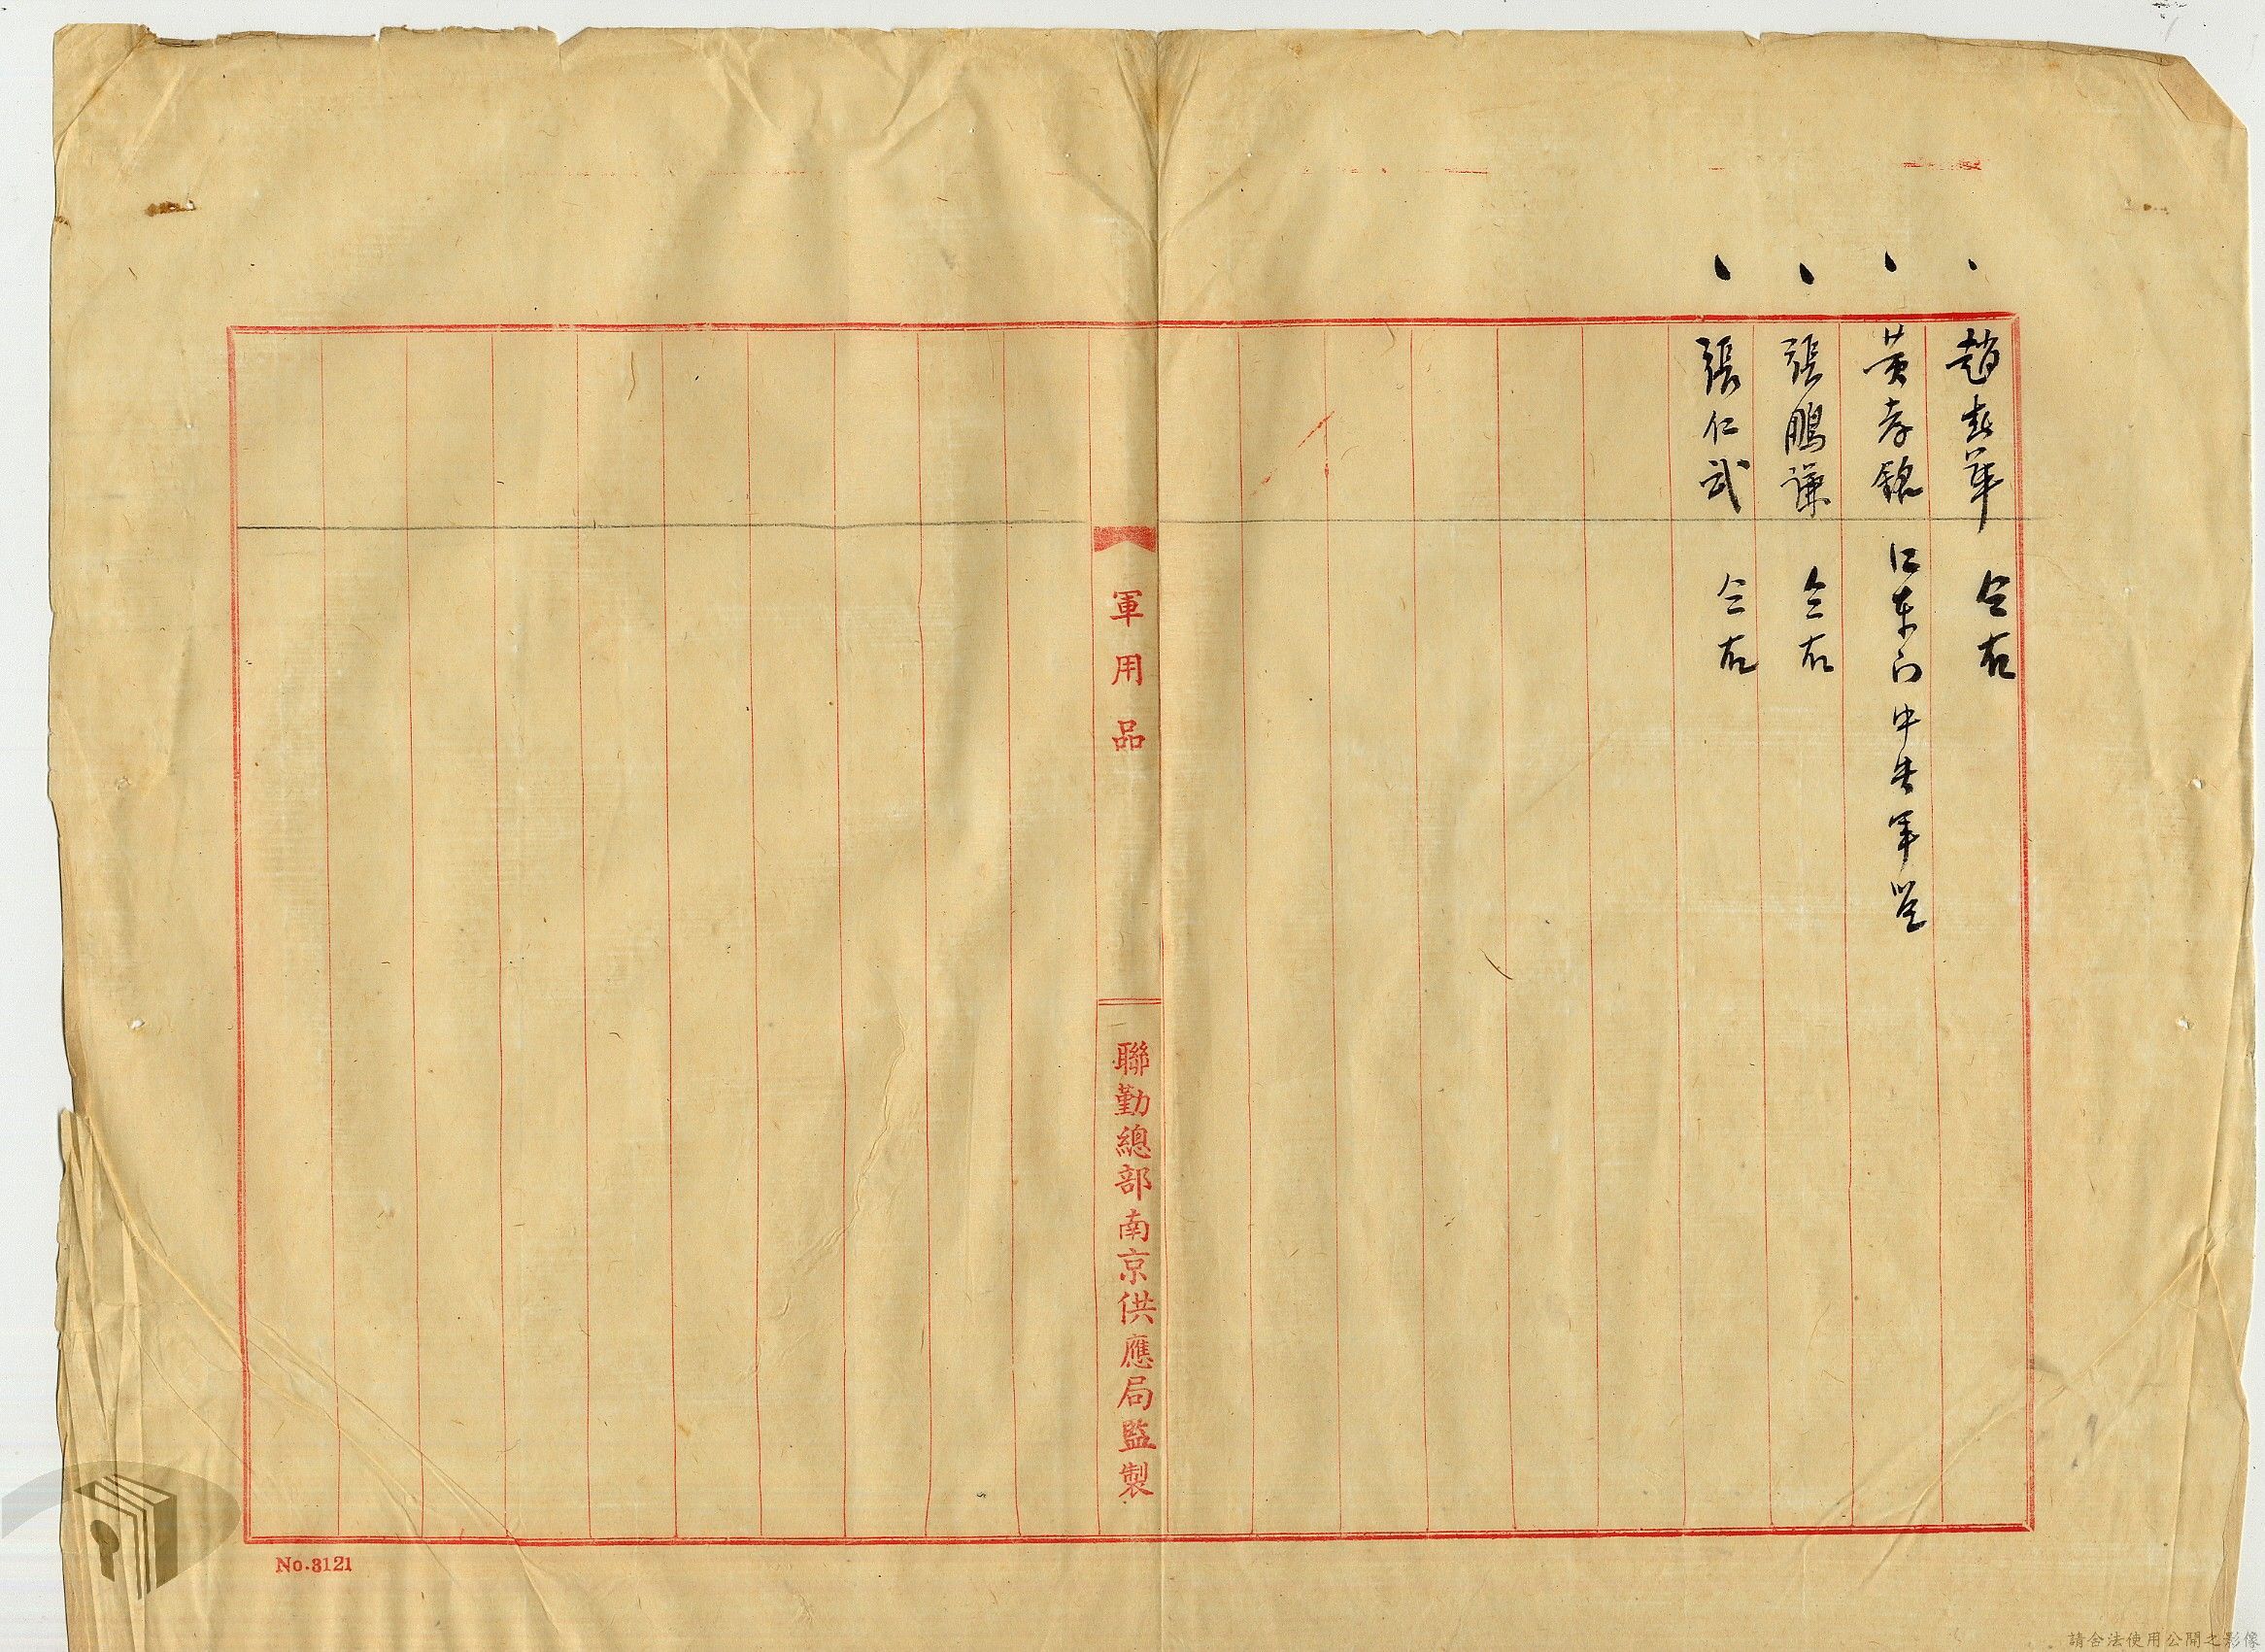 趙志華 仝右
黃孝銘 仁東门中央軍営
張鵬謙 仝右
張仁武 仝右
軍用品
聯勤總部南京供應局監製
No.3121
請合法使用公開之影像